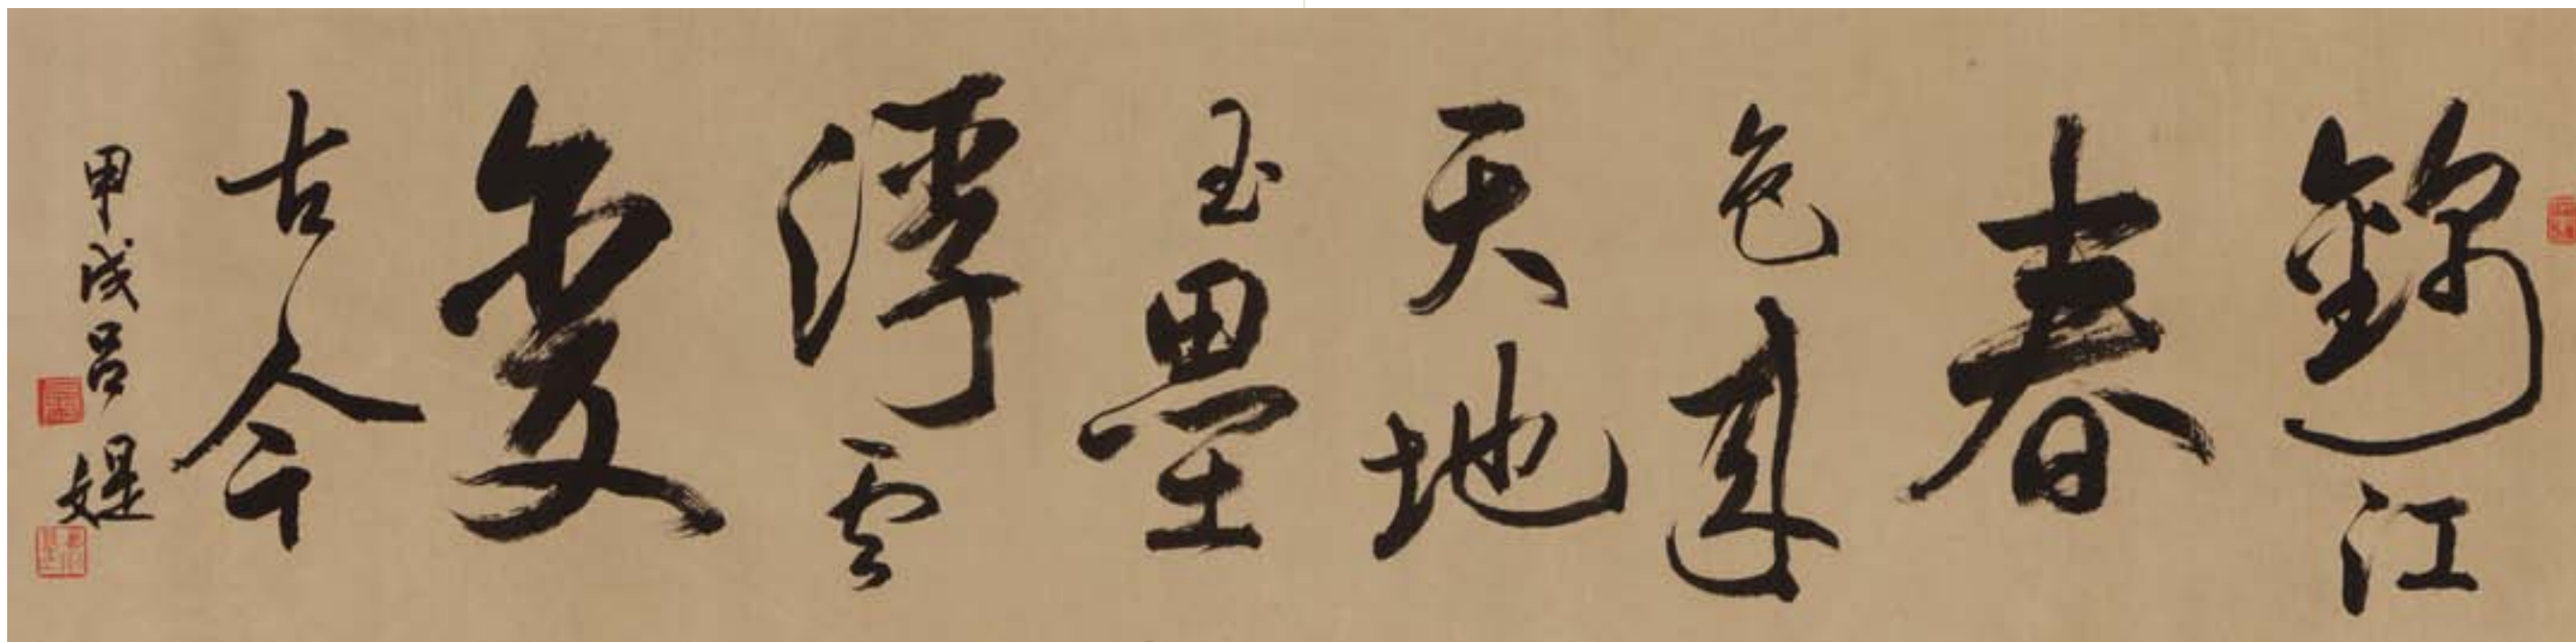 錦江
春
色來
天地
玉壘
浮雲
變
古今
甲戌呂媞